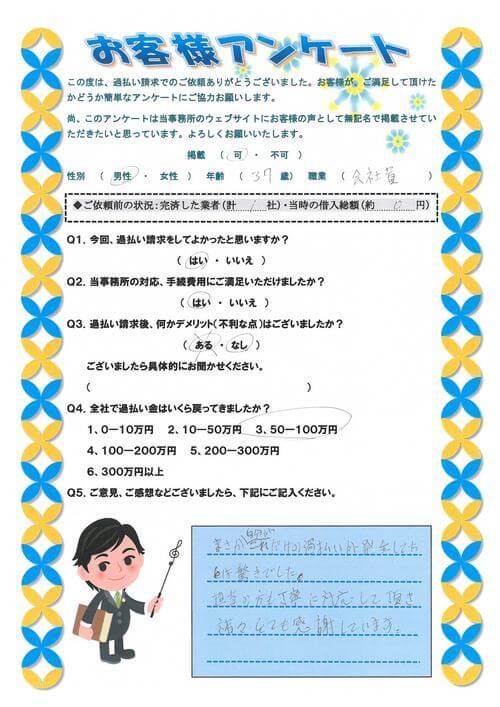 お客様アンケート
この度は、過払い請求でのご依頼ありがとうございました。お客様が、ご満足して頂けた
かどうか簡単なアンケートにご協力お願いします。
尚、このアンケートは当事務所のウェブサイトにお客様の声として無記名で掲載させてい
ただきたいと思っています。よろしくお願いいたします。
掲載 （ 可 ・ 不可 ）
性別 （ 男性 ・ 女性 ） 年齢 （ 37 歳） 職業 （ 会社員 ）
◆ご依頼前の状況：完済した業者（計 1 社）・当時の借入総額（約 0 円）
Q1．今回、過払い請求をしてよかったと思いますか？
（ はい ・ いいえ ）
Q2．当事務所の対応、手続費用にご満足いただけましたか？
（ はい ・ いいえ ）
Q3．過払い請求後、何かデメリット（不利な点）はございましたか？
（ ある ・ なし ）
ございましたら具体的にお聞かせください。
（ ）
Q4．全社で過払い金はいくら戻ってきましたか？
1、0－10万円 2、10－50万円 3、50－100万円
4、100－200万円 5、200－300万円
6、300万円以上
Q5．ご意見、ご感想などございましたら、下記にご記入ください。
まさか これだけの過払いが発生してた
驚きでした。
担当の方も丁寧に対応して頂き
とても感謝しています。